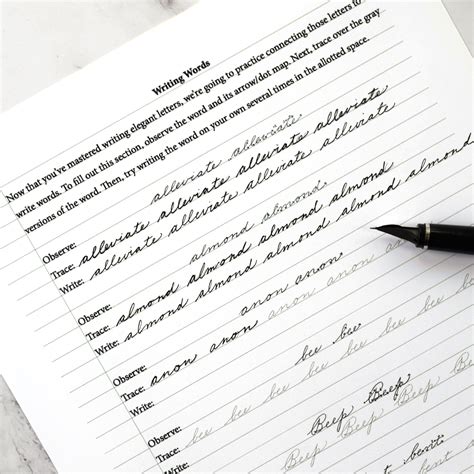 Writing Words
Now that you've mastered writing elegant letters, we're going to practice connecting those letters to
write words. To fill out this section, observe the word and its arrow/dot map. Next, trace over the gray
versions of the word. Then, try writing the word on your own several times in the allotted space.
Observe: alleviate alleviate
Trace: alleviate alleviate alleviate alleviate
Write: alleviate alleviate alleviate alleviate
Observe: almond almond
Trace: almond almond almond almond
Write: almond almond almond almond almond
Observe: anon anon
Trace: anon anon anon anon anon
Write:
Observe: bee bee
Trace: bee bee bee bee bee bee
Write:
Beep Beep
Beep Beep Beep